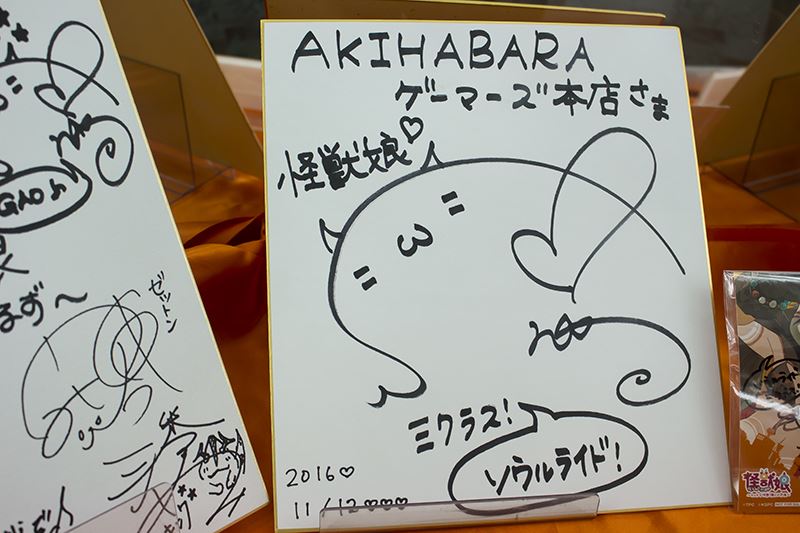 AKIHABARA
ゲーマーズ本店さま
怪獣娘♡
ミクラス!
ソウルライド!
2016♡
11/12♡♡♡
GAO♪
るず〜
ゼットン
怪獣娘